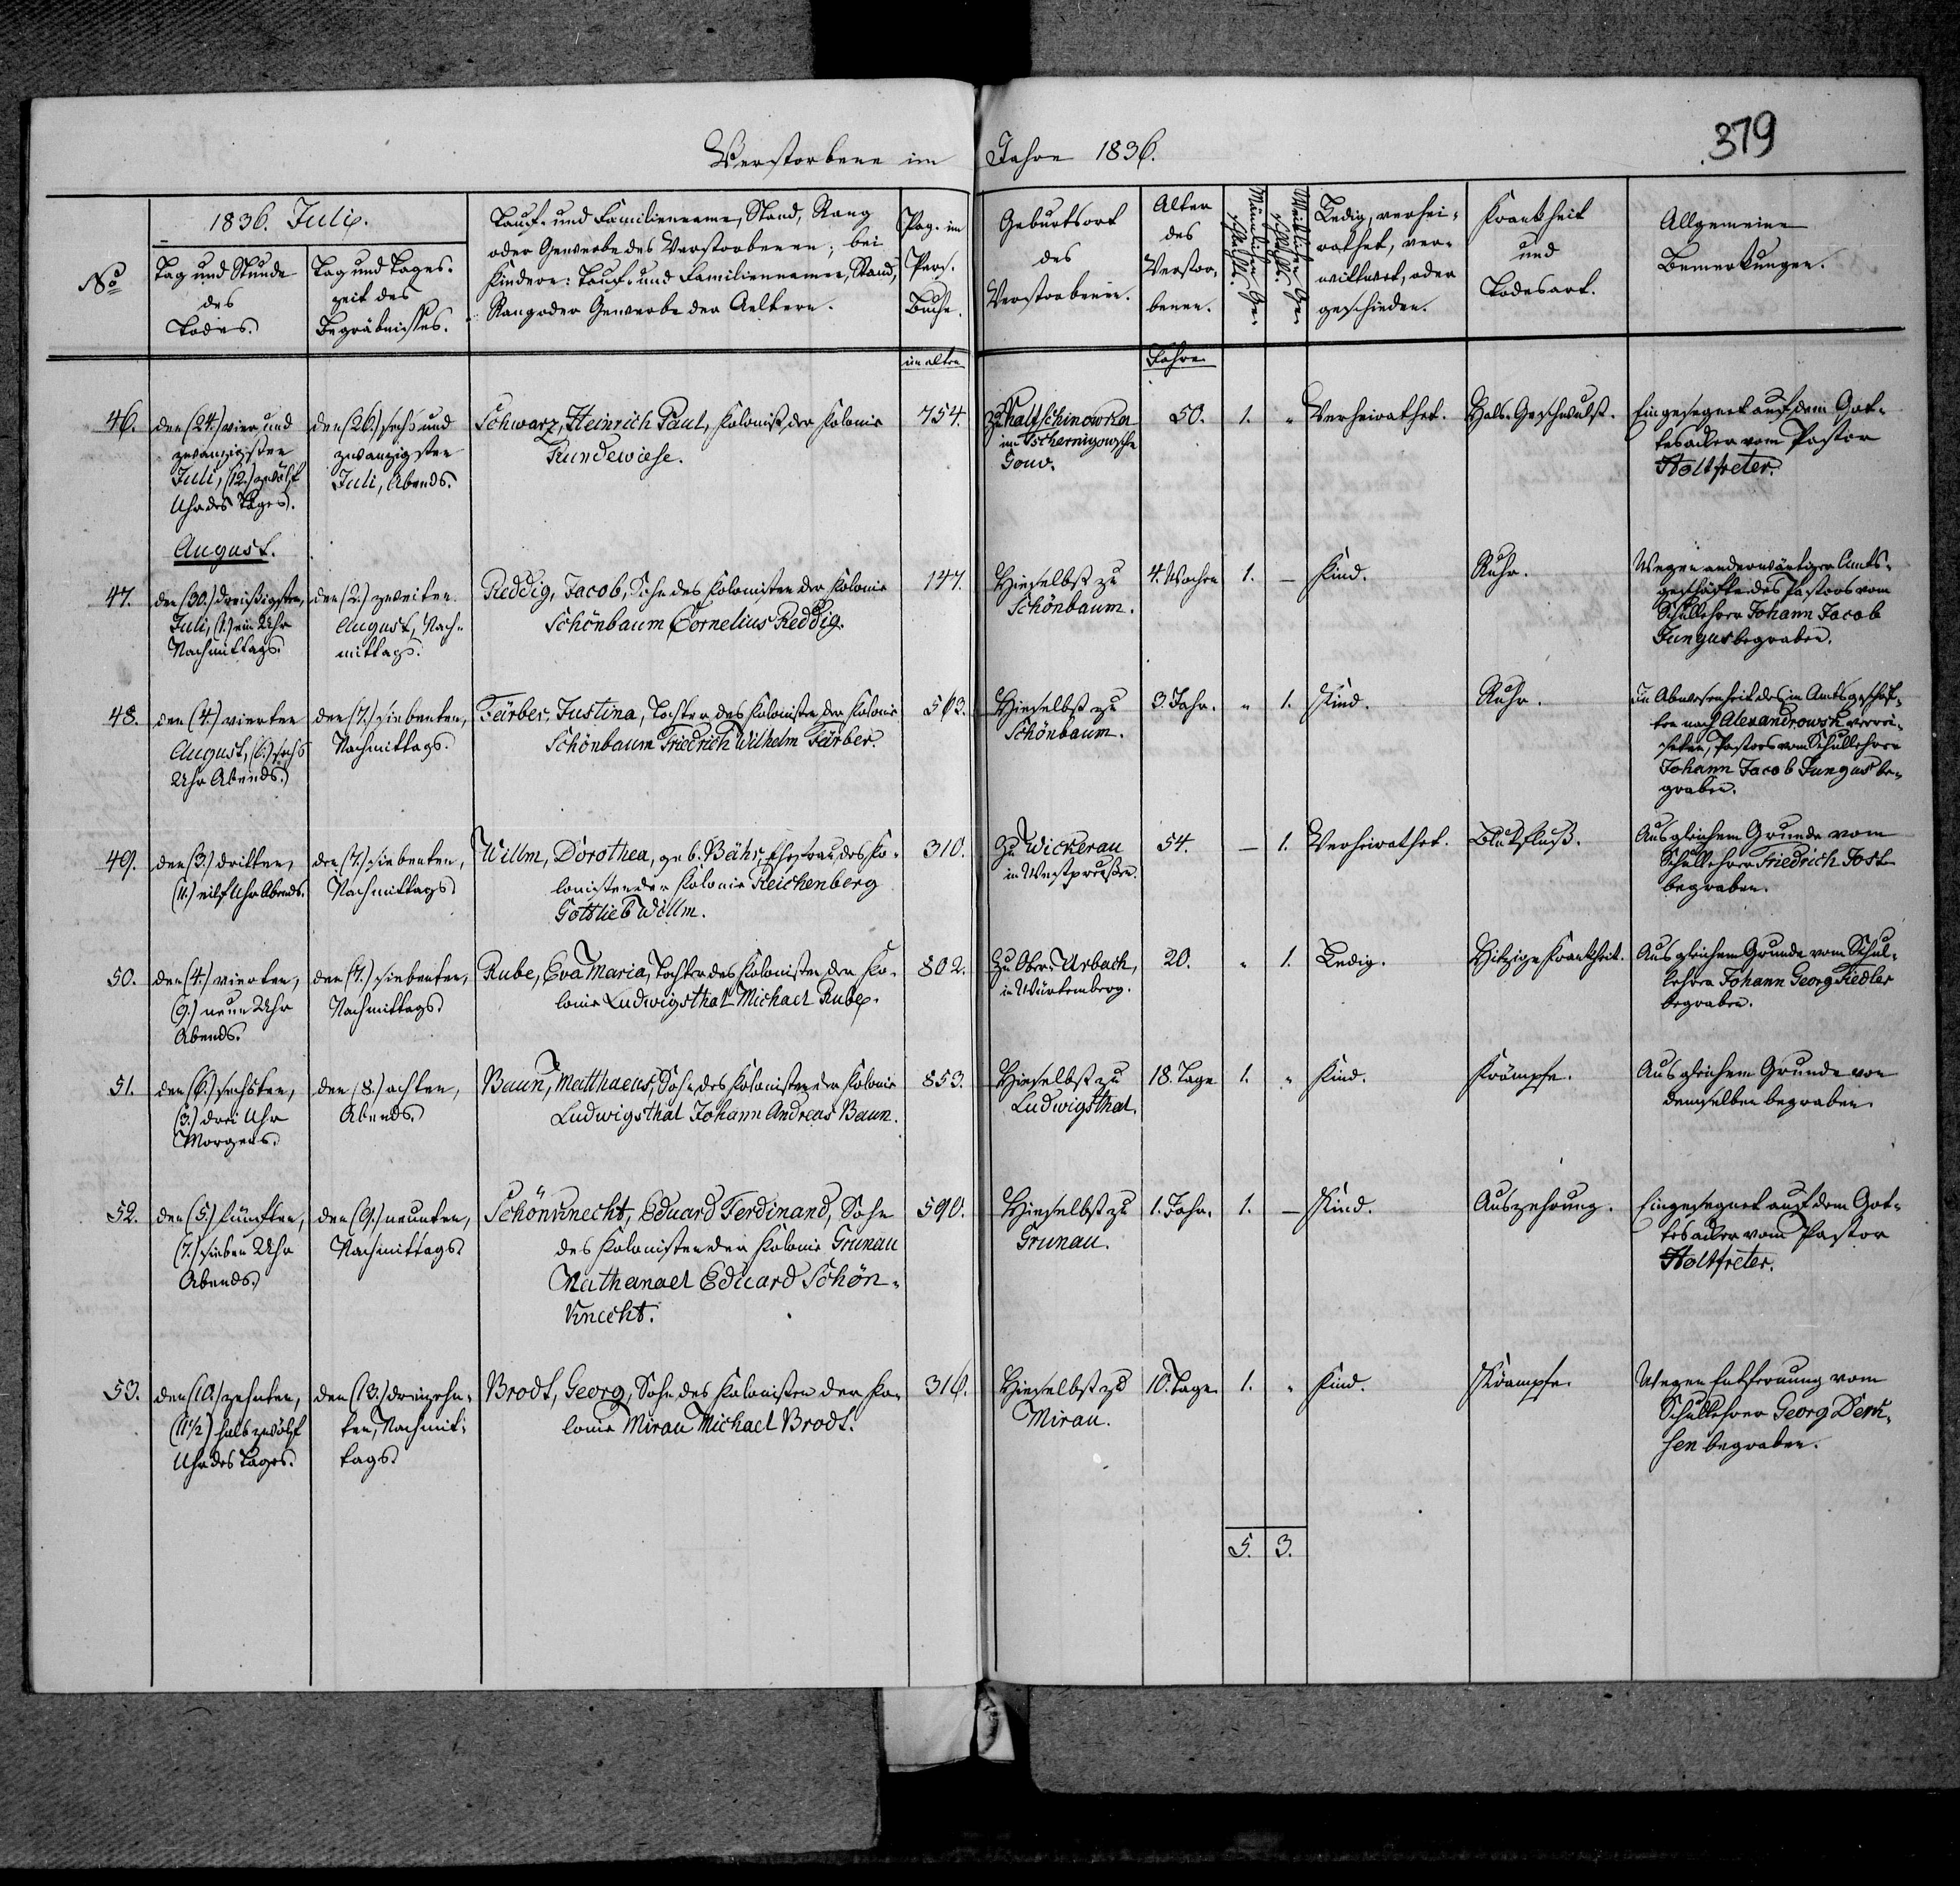 379
Verstorbene im Jahre 1836.
No
1836. Julÿ.
Tag und Stunde
des
Todes.
Tag und Tages-
zeit des
Begräbnisses.
Tauf- und Familienname, Stand, Rang
oder Gewerbe des Verstorbenen; bei
Kindern: Tauf- und Familiennamen, Stand,
Rang oder Gewerbe der Aeltern.
Pag. im
Pers.
Buche.
im alten
Geburtsort
des
Verstorbenen.
Alter
des
Verstor-
benen.
Jahre
Männlichen Ge-
schlechts.
Weiblichen Ge-
schlechts.
Ledig, verhei-
rathet, ver-
wittwet, oder
geschieden.
Krankheit
und
Todesart.
Allgemeine
Bemerkungen.
46.
den (24.) vier und
zwanzigsten
Juli, (12.) zwölf
Uhr des Tages.
den (26.) sechs und
zwanzigsten
Juli, Abends.
Schwarz, Heinrich Paul, Kolonist der Kolonie
Rundewiese.
754.
Zu Kaltschinowka
im Tschernigowschen
Gouv.
50.
1.
"
Verheirathet.
Hals-Geschwulst.
Eingesegnet auf dem Got-
tesacker vom Pastor
Holtfreter.
August.
47.
den (30.) dreißigsten,
Juli, (1.) ein Uhr
Nachmittags.
den (2.) zweiten
August, Nach-
mittags.
Reddig, Jacob, Sohn des Kolonisten der Kolonie
Schönbaum Cornelius Reddig.
147.
Hieselbst zu
Schönbaum.
4. Wochen
1.
–
Kind.
Ruhr.
Wegen anderwärtiger Amts-
geschäfte des Pastors vom
Schullehrer Johann Jacob
Jungas begraben.
48.
den (4.) vierten
August, (6.) sechs
Uhr Abends.
den (7.) siebenten,
Nachmittags.
Färber, Justina, Tochter des Kolonisten der Kolonie
Schönbaum Friedrich Wilhelm Färber.
563.
Hieselbst zu
Schönbaum.
3. Jahr.
"
1.
Kind.
Ruhr.
In Abwesenheit des in Amtsgeschäf-
ten nach Alexandrowsk verrei-
seten, Pastors vom Schullehrer
Johann Jacob Jungas be-
graben.
49.
den (3.) dritten,
(11.) eilf Uhr Abends.
den (7.) siebenten,
Nachmittags.
Willm, Dorothea, geb. Bähr, Ehefrau des Ko-
lonisten der Kolonie Reichenberg
Gottlieb Willm.
310.
Zu Wickerau
in Westpreußen.
54.
–
1.
Verheirathet.
Blutfluß.
Aus gleichem Grunde vom
Schullehrer Friedrich Jost
begraben.
50.
den (4.) vierten,
(9.) neun Uhr
Abends.
den (7.) siebenten,
Nachmittags.
Rube, Eva Maria, Tochter des Kolonisten der Ko-
lonie Ludwigsthal Michael Rube.
802.
Zu Ober-Urbach,
in Würtemberg.
20.
"
1.
Ledig.
Hitzige Krankheit.
Aus gleichem Grunde vom Schul-
lehrer Johann Georg Fiedler
begraben.
51.
den (6.) sechsten,
(3.) drei Uhr
Morgens.
den (8.) achten,
Abends.
Baun, Matthaeus, Sohn des Kolonisten der Kolonie
Ludwigsthal Johann Andreas Baun.
853.
Hieselbst zu
Ludwigsthal.
18. Tage
1.
"
Kind.
Krämpfe.
Aus gleichem Grunde von
demselben begraben.
52.
den (5.) fünften,
(7.) sieben Uhr
Abends.
den (9.) neunten,
Nachmittags.
Schönknecht, Eduard Ferdinand, Sohn
des Kolonisten der Kolonie Grunau
Nathanael Eduard Schön-
knecht.
590.
Hieselbst zu
Grunau.
1. Jahr.
1.
–
Kind.
Auszehrung.
Eingesegnet auf dem Got-
tesacker vom Pastor
Holtfreter.
53.
den (10.) zehnten,
(11½) halb zwölf
Uhr des Tages.
den (13.) dreizehn-
ten, Nachmit-
tags.
Brodt, Georg, Sohn des Kolonisten der Ko-
lonie Mirau Michael Brodt.
316.
Hieselbst zu
Mirau.
10. Tage.
1.
"
Kind.
Krämpfe.
Wegen Entfernung vom
Schullehrer Georg Derk-
sen begraben.
5. 3.